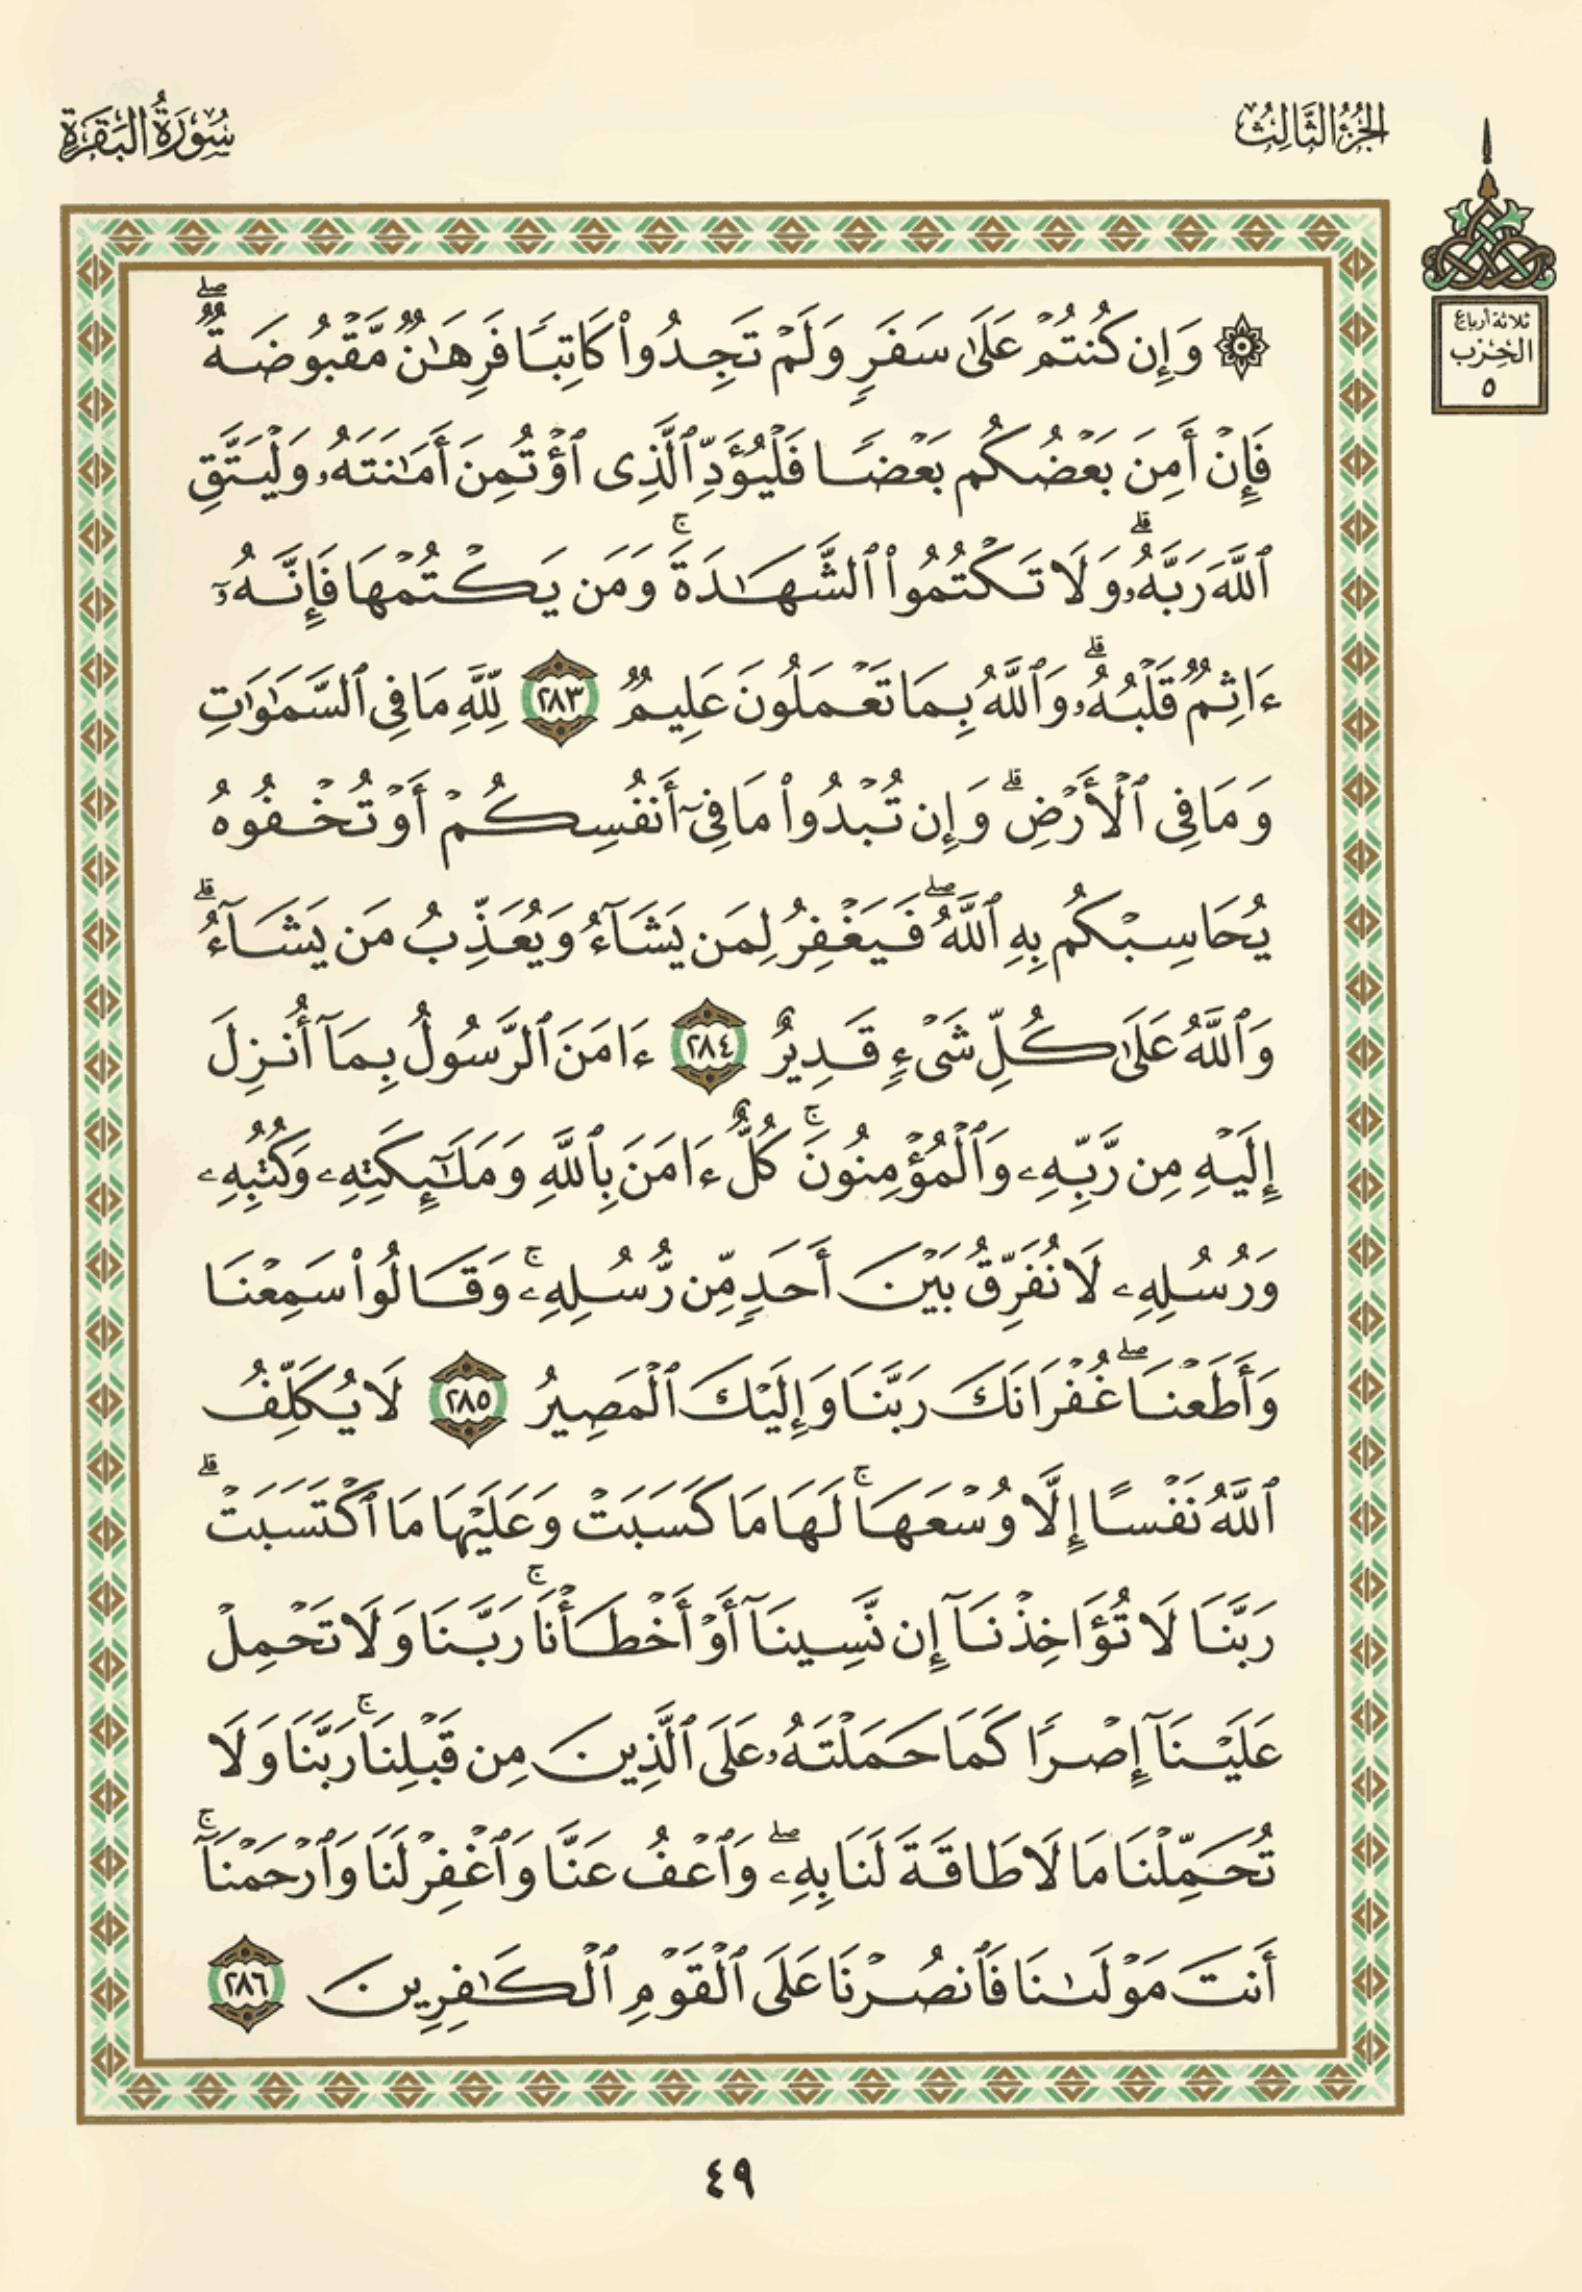 سُورَةُ البَقَرَةِ
الجُزْءُ الثَّالِثُ
ثلاثة أرباع
الحِزْب
٥
۞ وَإِن كُنتُمْ عَلَىٰ سَفَرٍ وَلَمْ تَجِدُوا۟ كَاتِبًا فَرِهَٰنٌ مَّقْبُوضَةٌ ۖ
فَإِنْ أَمِنَ بَعْضُكُم بَعْضًا فَلْيُؤَدِّ ٱلَّذِى ٱؤْتُمِنَ أَمَٰنَتَهُۥ وَلْيَتَّقِ
ٱللَّهَ رَبَّهُۥ ۗ وَلَا تَكْتُمُوا۟ ٱلشَّهَٰدَةَ ۚ وَمَن يَكْتُمْهَا فَإِنَّهُۥٓ
ءَاثِمٌ قَلْبُهُۥ ۗ وَٱللَّهُ بِمَا تَعْمَلُونَ عَلِيمٌ ٢٨٣ لِّلَّهِ مَا فِى ٱلسَّمَٰوَٰتِ
وَمَا فِى ٱلْأَرْضِ ۗ وَإِن تُبْدُوا۟ مَا فِىٓ أَنفُسِكُمْ أَوْ تُخْفُوهُ
يُحَاسِبْكُم بِهِ ٱللَّهُ ۖ فَيَغْفِرُ لِمَن يَشَآءُ وَيُعَذِّبُ مَن يَشَآءُ ۗ
وَٱللَّهُ عَلَىٰ كُلِّ شَىْءٍ قَدِيرٌ ٢٨٤ ءَامَنَ ٱلرَّسُولُ بِمَآ أُنزِلَ
إِلَيْهِ مِن رَّبِّهِۦ وَٱلْمُؤْمِنُونَ ۚ كُلٌّ ءَامَنَ بِٱللَّهِ وَمَلَٰٓئِكَتِهِۦ وَكُتُبِهِۦ
وَرُسُلِهِۦ لَا نُفَرِّقُ بَيْنَ أَحَدٍ مِّن رُّسُلِهِۦ ۚ وَقَالُوا۟ سَمِعْنَا
وَأَطَعْنَا ۖ غُفْرَانَكَ رَبَّنَا وَإِلَيْكَ ٱلْمَصِيرُ ٢٨٥ لَا يُكَلِّفُ
ٱللَّهُ نَفْسًا إِلَّا وُسْعَهَا ۚ لَهَا مَا كَسَبَتْ وَعَلَيْهَا مَا ٱكْتَسَبَتْ ۗ
رَبَّنَا لَا تُؤَاخِذْنَآ إِن نَّسِينَآ أَوْ أَخْطَأْنَا ۚ رَبَّنَا وَلَا تَحْمِلْ
عَلَيْنَآ إِصْرًا كَمَا حَمَلْتَهُۥ عَلَى ٱلَّذِينَ مِن قَبْلِنَا ۚ رَبَّنَا وَلَا
تُحَمِّلْنَا مَا لَا طَاقَةَ لَنَا بِهِۦ ۖ وَٱعْفُ عَنَّا وَٱغْفِرْ لَنَا وَٱرْحَمْنَآ ۚ
أَنتَ مَوْلَىٰنَا فَٱنصُرْنَا عَلَى ٱلْقَوْمِ ٱلْكَٰفِرِينَ ٢٨٦
٤٩